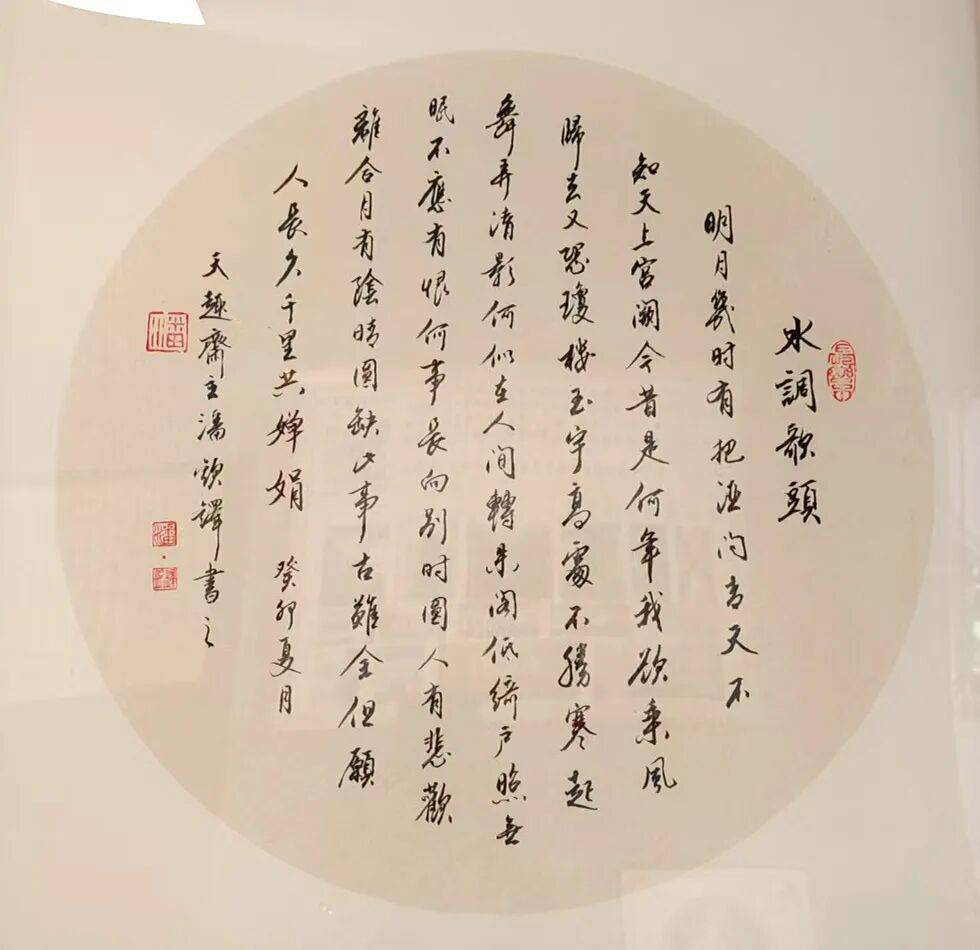 水調歌頭
明月幾时有把酒问青天不
知天上宫阙今昔是何年我欲乘風
歸去又恐瓊楼玉宇高處不勝寒起
舞弄清影何似在人间轉朱阁低綺户照無
眠不應有恨何事長向别时圆人有悲歡
離合月有陰晴圆缺此事古難全但願
人長久千里共婵娟 癸卯夏月
天趣齋主潘鐸書之